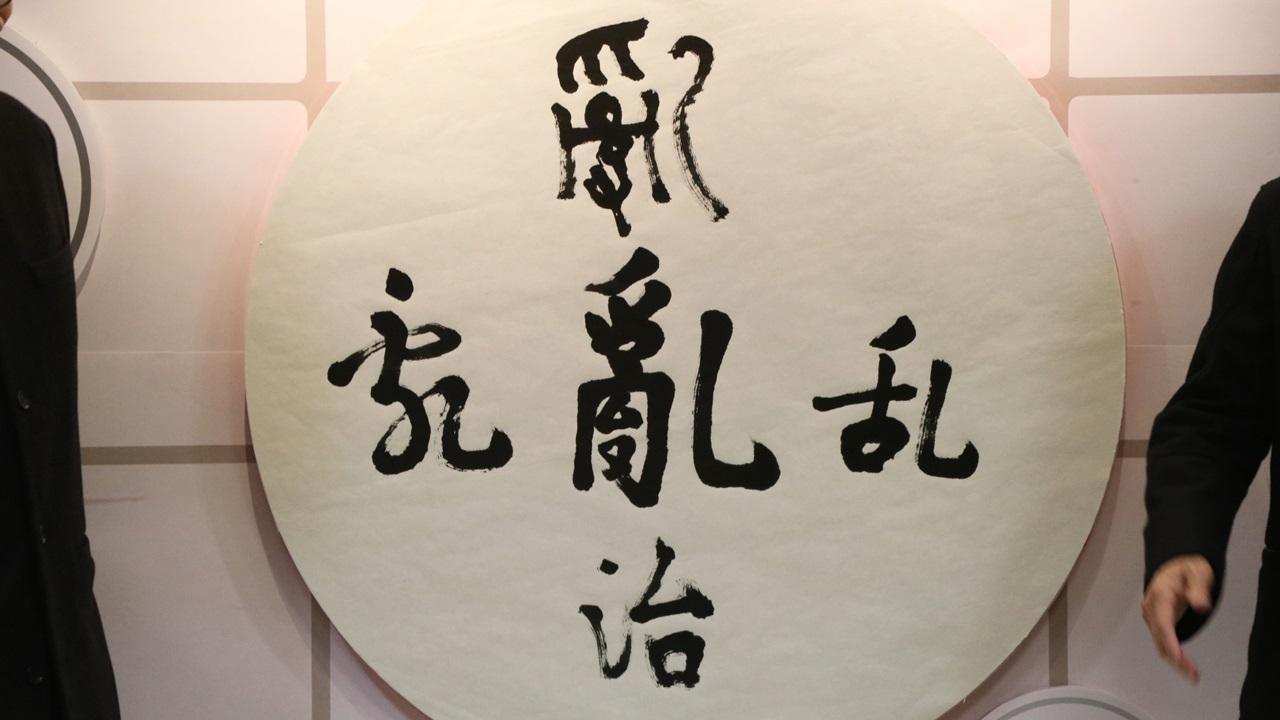 亂
亂 亂 乱
治